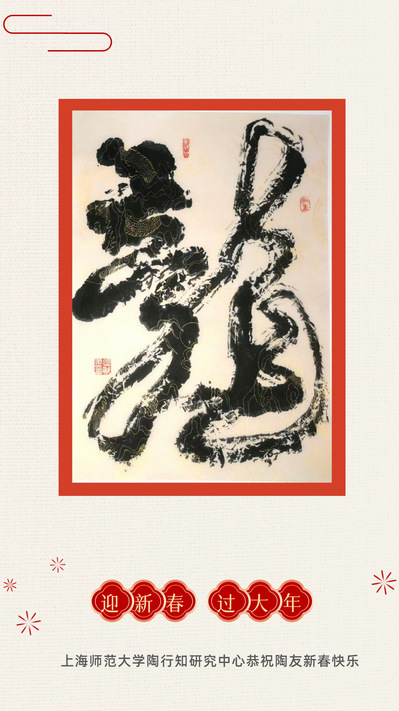 龍
迎新春 过大年
上海师范大学陶行知研究中心恭祝陶友新春快乐